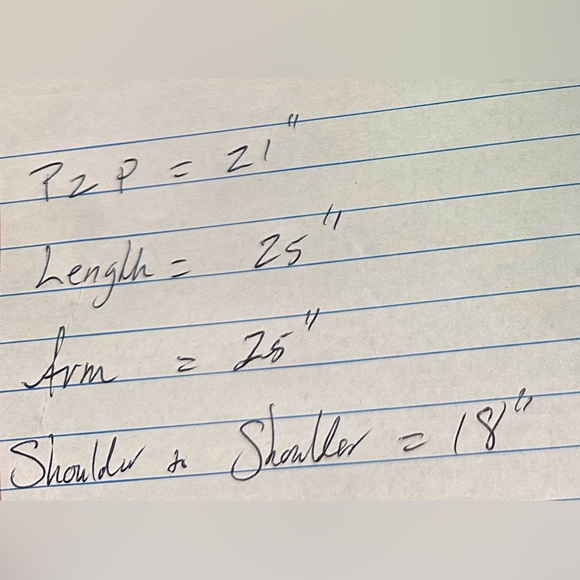 P2P = 21"
Length = 25"
Arm = 25"
Shoulder to Shoulder = 18"